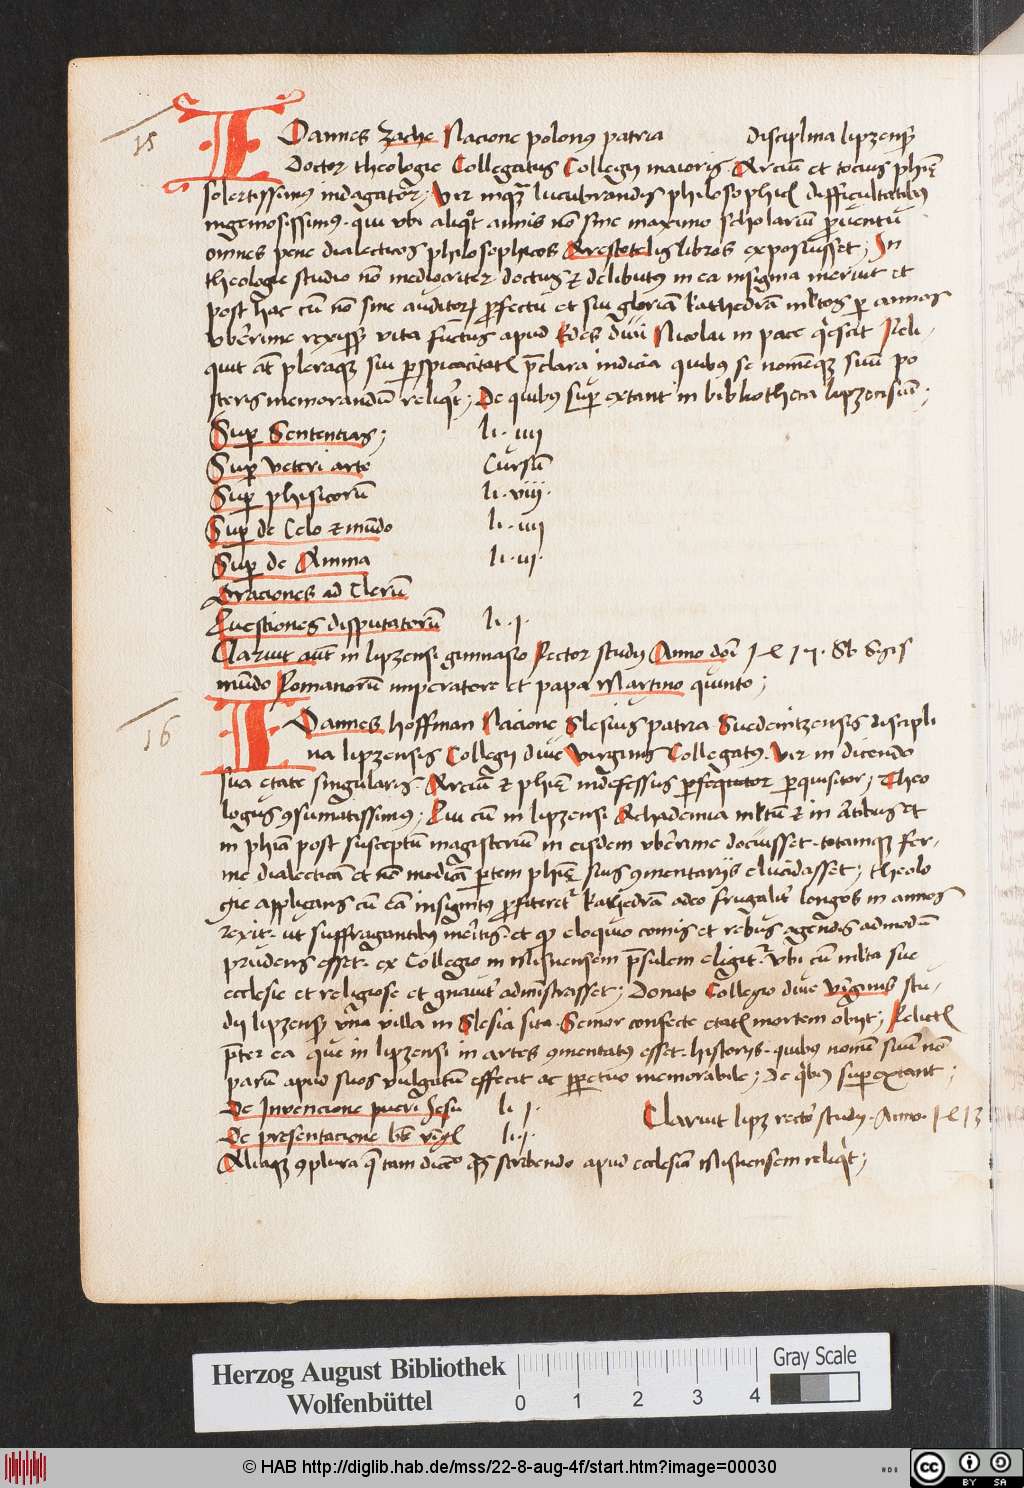 15
IOannes Zache Nacione polonus patria disciplina lipzensis
Doctor theologie Collegatus Collegij maioris Arcium et tocius phie
solertissimus indagator; Vir inquam lucubrandis philosophicis difficultatibus
ingeniosissimus. qui vbi aliquot annis non sine maximo scholarium prouentu
omnes pene dialecticos philosophicos Arestotelis libros exposuisset; In
theologie studio non mediocriter doctus et delibutus in ea insignia meruit et
post hac cum non sine auditorum profectu et sui gloriam kathedram multos per annos
vberrime rexisset vita functus apud Edes diui Nicolai in pace quiescit Reli-
quit autem pleraque sui perspicacitatis preclara indicia quibus se nomenque suum po
steris memorandum reliquit; De quibus super extant in bibliotheca lipzecisium;
Super Sententias; li. iiij
Super Veteri arte Cursum
Super phisicorum li. viij.
Super de Celo et mundo li. iiij
Super de Anima li. iij.
Oraciones ad Clerum
Questiones disputatorum li. j.
Claruit autem in lipzensi gimnasio Rector studij Anno domini 1417. Sub Sigis
mundo Romanorum imperatore et papa Martino quinto;
16
IOannes hoffman Nacione Slesius patria Suedeintzensis discipli
na lipzensis Collegij diue Virginis Collegatus. Vir in dicendo
sua etate singularis. Arcium et phie indefessus persequutor perquisitor; Theo
logus consumatissimus; Qui cum in lipzensi Achademia multum et in Artibus et
in phia post susceptum magisterium in eisdem vberrime docuisset. totamque fer-
me dialecticam et non modicam partem phie suis commentarijs elucidasset; theolo
gie applicans cum eam insignitus profiteretur kathedram adeo frugaliter longos in annos
rexit. ut suffragantibus meritis. et quod eloquio comis et rebus agendis admodum
prudens esset. ex Collegio in Misnensem presulem eligitur. Vbi cum multa sue
ecclesie et religiose et gnauiter administrasset; Donato Collegio diue virginis stu-
dij lipzensis vna villa in Slesia sita. Senior confecte etatis mortem obijt; Relictis
preter ea que in lipzensi in artes commentatus esset. historijs. quibus nomen suum non
parum apud suos vulgatum effecit ac perpetuo memorabile; De quibus super extant;
De Invencione pueri Jesu li j. Claruit lipz rector studij. Anno. 1413
De presentacione beate virginis li. j.
Aliaque complura que tam dicendo quam scribendo apud ecclesiam Misnensem reliquit;
Herzog August Bibliothek
Wolfenbüttel
0 1 2 3 4
Gray Scale
© HAB http://diglib.hab.de/mss/22-8-aug-4f/start.htm?image=00030
HAB
cc BY SA